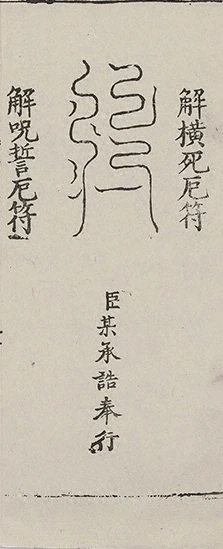 解橫死厄符
臣某承誥奉行
解呪誓厄符